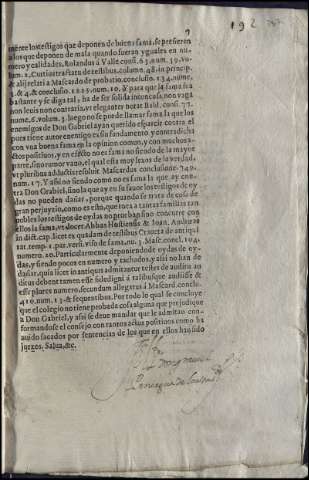 192
9
mente los testigos que deponen de buena fama, se prefieren
a los que deponen de mala quando fueran yguales en nu-
mero y calidades. Rolandus à Valle, cons. 63. num. 39. vo-
lum. 2. Curtio tractatu de testibus. colum. 48. in princip.
& alij relati a Mascardo de probatio. conclusio. 134. nume.
3. & 4. & conclusio. 1225. num. 10. Y para que la fama sea
bastante y se diga tal, ha de ser solida inconcusa, non vaga
non leuis non contraria, vt eleganter notat Bald. cons. 77.
nume. 5. volum. 3. luego no se puede llamar fama la que los
enemigos de Don Gabriel ayan querido esparcir contra el
pues tiene autor enemigo en su fundamento y contradicha
con vna buena fama en la opinion comun, y con muchos a-
ctos positiuos, y en efecto no es fama no siendo de la mayor
parte, sino rumor vano, el qual esta muy lexos de la verdad,
vt pluribus adductis resoluit Mascardus conclusione. 749.
num. 17. Y assi no siendo como no es fama la que ay con-
tra Don Grabiel, sino la que ay en su fauor los testigos de oy
das no pueden dañar, porque quando se trata de cosa de
gran perjuyzio, como es esta, que toca a tantas familias tan
nobles los testigos de oydas no prueban sino concurre con
ellos la fama, vt docet Abbas Hostiensis & Ioan. Andreas
in dict. cap. licet ex quadam de testibus Craueta de antiqui
tat. temp. 1. par. versi. viso de fama, nu. 3. Masc. concl. 104.
numero. 20. Particularmente deponiendo de oydas de oy-
das, y siendo pocos en numero y tachados, y assi no han de
dañar, quia licet in antiquis admitantur testes de auditu au
ditus debent tamen esse fidedigni à talibusque audisse &
esse plures numero, secundum allegata à Mascard. conclu.
410. num. 13. & sequentibus. Por todo lo qual se concluye
que el colegio no tiene probada cosa alguna que perjudique
a Don Gabriel, y assi se deue mandar que le admitan con-
formandose el consejo con tantos actus positiuos como ha
auido sacados por sentencias de los que en ellos han sido
juezes. Salua, &c.